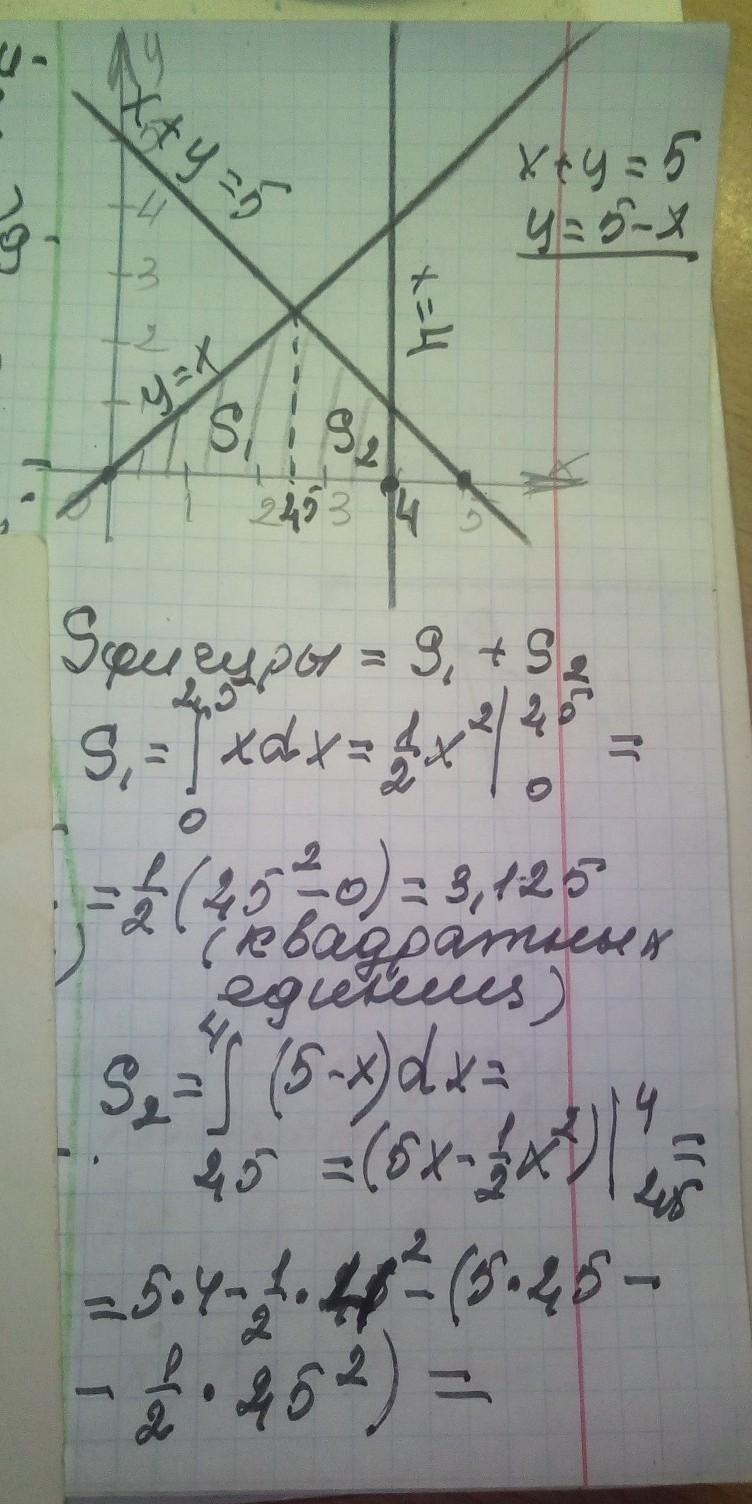 y
x+y=5
5
4
3
2
y=x
x=4
x+y=5
y=5-x
S₁
S₂
x
0 1 2 2,5 3 4 5
Sфигуры = S₁ + S₂
S₁ = ∫₀^2,5 xdx = 1/2 x² |₀^2,5 =
= 1/2 (2,5² - 0) = 3,125
(квадратных
единиц)
S₂ = ∫_2,5^4 (5-x)dx =
= (5x - 1/2 x²) |_2,5^4 =
= 5·4 - 1/2 · 4² - (5·2,5 -
- 1/2 · 2,5²) =